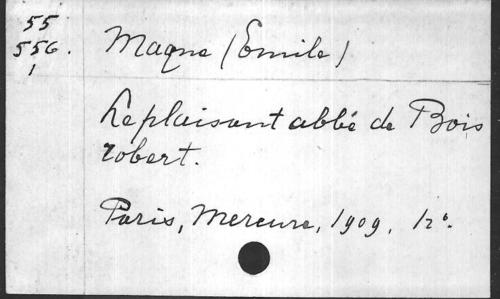 55
556.
1
Magne (Emile)
Le plaisant abbé de Bois
robert.
Paris, Mercure, 1909, 12°.